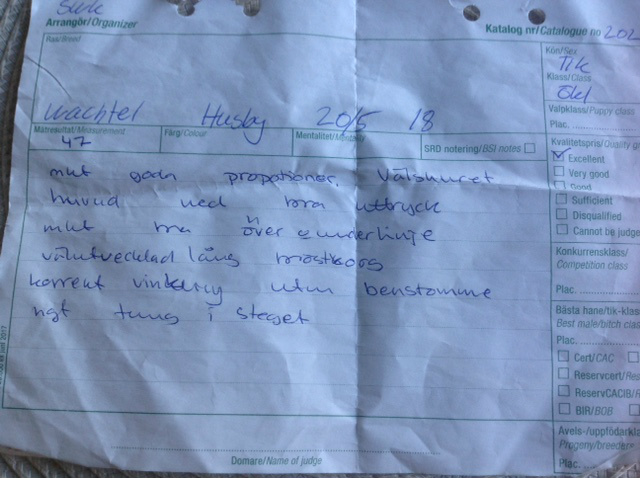 SKK
Arrangör/Organizer
Katalog nr/Catalogue no 202
Ras/Breed
Kön/Sex
Tik
Klass/Class
Ökl
Valpklass/Puppy class
Plac.
wachtel Husby 20/5 18
Mätresultat/Measurement
47
Färg/Colour
Mentalitet/Mentality
SRD notering/BSI notes
Kvalitetspris/Quality gr
Excellent
Very good
Good
Sufficient
Disqualified
Cannot be judge
mkt goda propotioner, välskuret
huvud med bra uttryck
mkt bra över o underlinje
välutvecklad lång bröstkorg
korrekt vinkling utm benstomme
ngt tung i steget
Konkurrensklass/
Competition class
Plac.
Bästa hane/tik-klas
Best male/bitch clas
Plac.
Cert/CAC
Reservcert/Res
ReservCACIB/R
BIR/BOB
Avels-/uppfödarkla
Progeny/breeders
Plac.
Domare/Name of judge